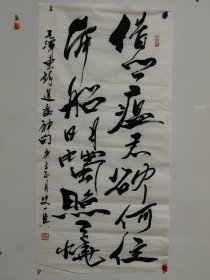 借问瘟君欲何往
纸船明烛照天烧
毛泽东诗送瘟神句